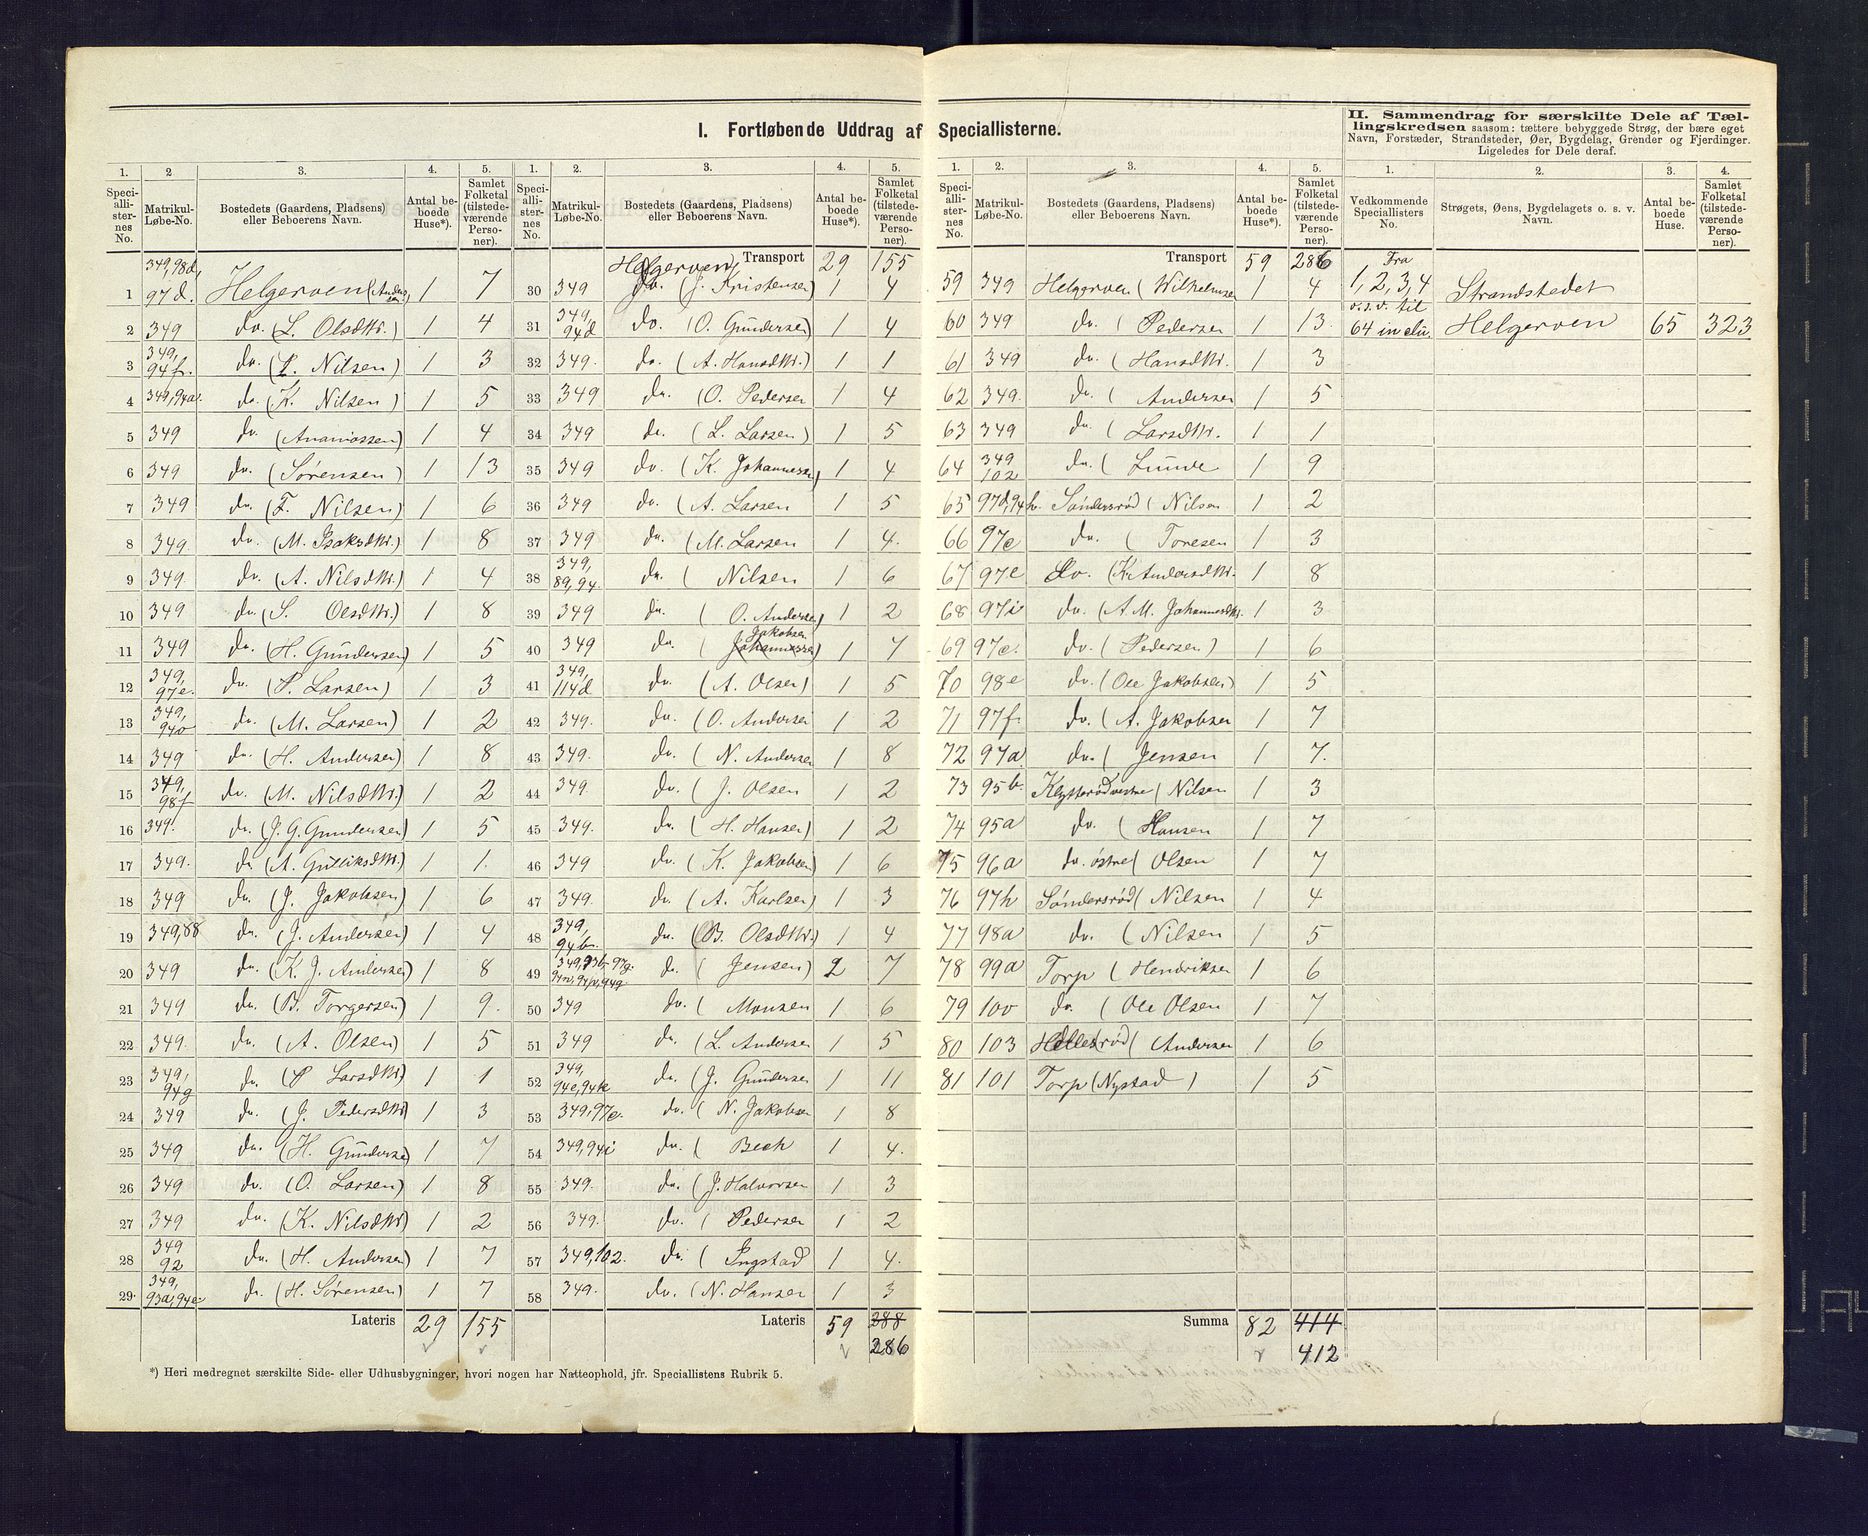 I. Fortløbende Uddrag af Speciallisterne.
II. Sammendrag for særskilte Dele af Tæl-
lingskredsen saasom: tættere bebyggede Strøg, der bære eget
Navn, Forstæder, Strandsteder, Øer, Bygdelag, Grender og Fjerdinger.
Ligeledes for Dele deraf.
1. 2 3. 4. 5. 1. 2. 3. 4. 5.
Speciallisternes No. Matrikul-Løbe-No. Bostedets (Gaardens, Pladsens) eller Beboerens Navn. Antal beboede Huse*). Samlet Folketal (tilstedeværende Personer).
1 349,98d, 97d. Helgeroen (Anders 1 7
2 349 do. (L. Olsdtr.) 1 4
3 349, 94f. do. (L. Nilsen) 1 3
4 349,94a. do. (K. Nilsen) 1 5
5 349 do. (Ananiassen) 1 4
6 349 do. (Sørensen) 1 13
7 349 do. (F. Nilsen) 1 6
8 349. do. (M. Isaksdtr.) 1 8
9 349. do. (A. Nilsdtr.) 1 4
10 349 do. (S. Olsdtr.) 1 8
11 349 do. (H. Gundersen) 1 5
12 349, 97e. do. (P. Larsen) 1 3
13 349, 94o do. (M. Larsen) 1 2
14 349 do. (H. Andersen) 1 8
15 349, 98f do. (M. Nilsdtr.) 1 2
16 349. do. (J. G. Gundersen) 1 5
17 349. do (A. Gulliksdtr.) 1 1.
18 349 do. (J. Jakobsen) 1 6
19 349,88 do. (J. Andersen) 1 4
20 349 do. (K. J. Andersen) 1 8
21 349 do. (B. Torgersen) 1 9.
22 349. do. (A. Olsen) 1 5
23 349, 94g do. (P Larsdtr) 1 1
24 349 do. (J. Pedersdtr) 1 3
25 349 do. (H. Gundersen) 1 7
26 349 do. (O. Larsen) 1 8
27 349 do. (K. Nilsdtr) 1 2
28 349 92 do. (H. Andersen) 1 7
29. 349, 93a,94e. do. (H. Sørensen) 1 7
Lateris 29 155
Helgeroen Transport 29 155
30 349 do. (J. Kristensen) 1 4
31 349, 94d do. (O. Gundersen) 1 4
32 349. do. (A. Hansdtr.) 1 1
33 349 do. (O. Pedersen 1 4
34 349 do. (L. Larsen) 1 5
35 349 do. (K. Johannessen) 1 4
36 349 do. (A. Larsen 1 5
37 349 do. (M. Larsen 1 4.
38 349, 89,94. do. ( Nilsen 1 6
39 349 do. ( O. Andersen) 1 2
40 349 do. ( Johannessen) Jakobsen 1 7
41 349, 114d do. (A. Olsen) 1 5
42 349. do. (O. Andersen 1 2
43 349. do. (N. Andersen 1 8
44 349. do. (J. Olsen 1 2
45 349. do. (H. Hansen) 1 2
46 349 do. (K. Jakobsen) 1 6
47 349. do. (A. Karlsen) 1 3
48 349, 94b. do. (B. Olsdtr.) 1 4
49 do. ( Jensen) 2 7
50 349 do. ( Monsen 1 6
51 349 do. (L. Andersen 1 5
52 349, 94c,94k do. (J. Gundersen 1 11
53 349,97c. do. (N. Jakobsen 1 8
54 349,94i do. ( Bech 1 4.
55 349. do. (J. Halvorsen 1 3
56 349. do. ( Pedersen 1 2
57 349,102. do. ( Ingstad 1 4.
58 349. do. (N. Hansen 1 3
Lateris 59 288
286
Transport 59 286
59 349 Helgeroen (Wilhelmsen 1 4
60 349 do. ( Pedersen 1 13.
61 349 do. (Hansdtr. 1 3
62 349. do. ( Andersen 1 5
63 349 do. ( Larsdtr. 1 1
64 349 102 do. ( Lunde 1 9
65 97d,94h. Søndersrød ( Nilsen 1 2
66 97c do. ( Toresen 1 3
67 97e do. (K. Andersdtr. 1 8
68 97i do. (A. M. Johannesdtr. 1 3
69 97c. do. (Pedersen) 1 6
70 98e do. (Ole Jakobsen) 1 5
71 97f. do. (A. Jakobsen 1 7
72 97a do. ( Jensen 1 7.
73 95b Klytterød vestre ( Nilsen 1 3
74 95a do. ( Hansen 1 7
75 96a do. østre ( Olsen 1 7
76 97h Søndersrød ( Nilsen 1 4
77 98a do. ( Nilsen 1 5
78 99a Torp (Hendriksen 1 6
79 100 do. ( Ole Olsen 1 7
80 103 Hellesrød ( Andersen 1 6
81 101 Torp (Nystad ) 1 5
Summa 82 414
412
1. 2. 3. 4.
Vedkommende Speciallisters No. Strøgets, Øens, Bygdelagets o. s. v. Navn. Antal beboede Huse. Samlet Folketal (tilstedeværende Personer).
Fra
1, 2, 3, 4 Strandstedet
o.s.v. til
64 inclu. Helgeroen 65 323
*) Heri medregnet særskilte Side- eller Udhusbygninger, hvori nogen har Natteophold, jfr. Speciallistens Rubrik 5.